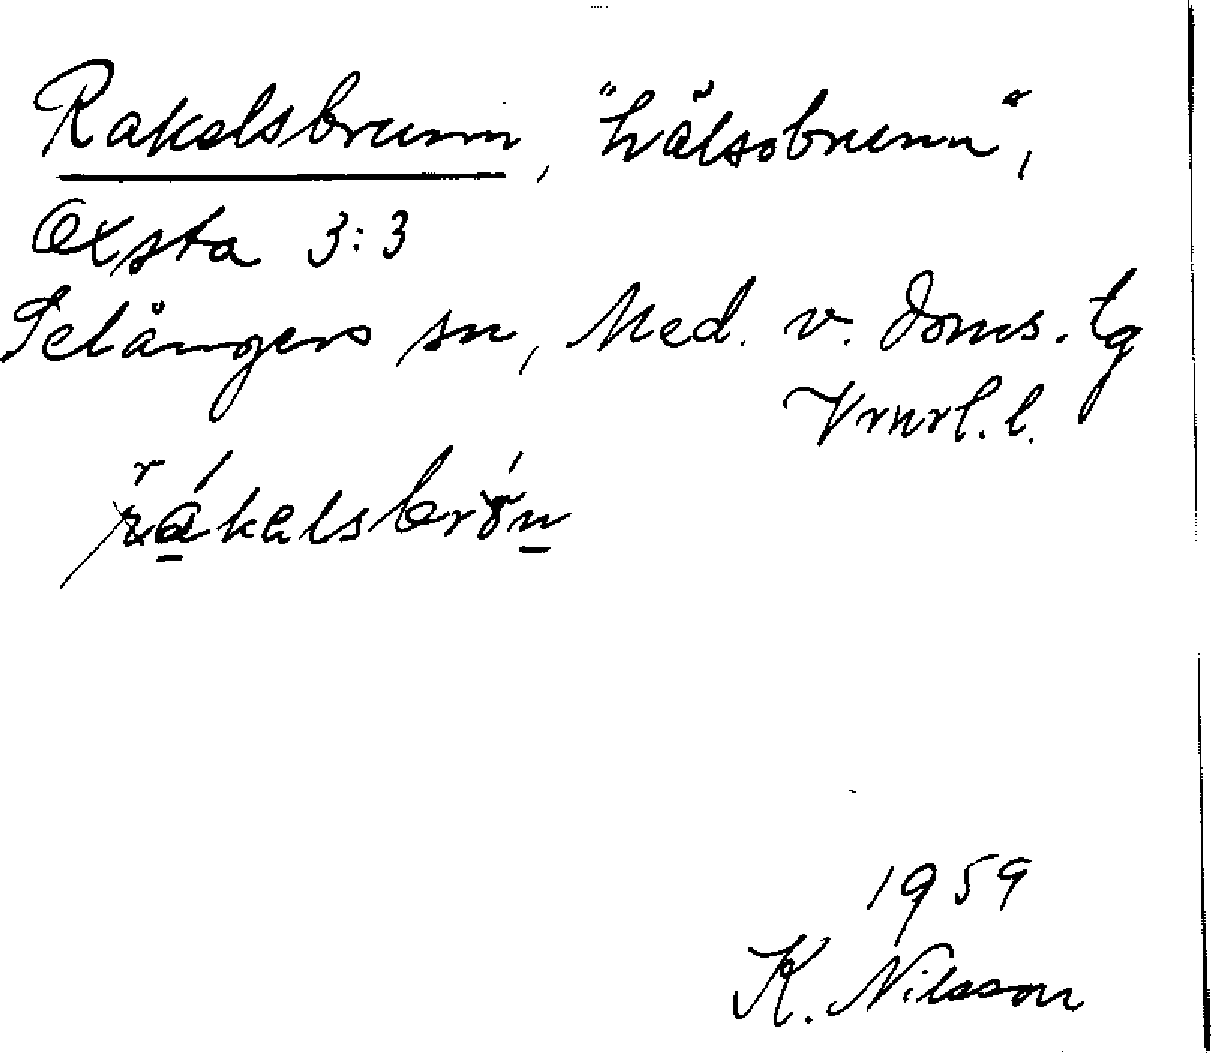 Rakelsbrunn, "hälsobrunn",
Oxsta 3:3
Selångers sn, Med. v. doms. tg
r
rákelsbrö́n
1959
K. Nilsson